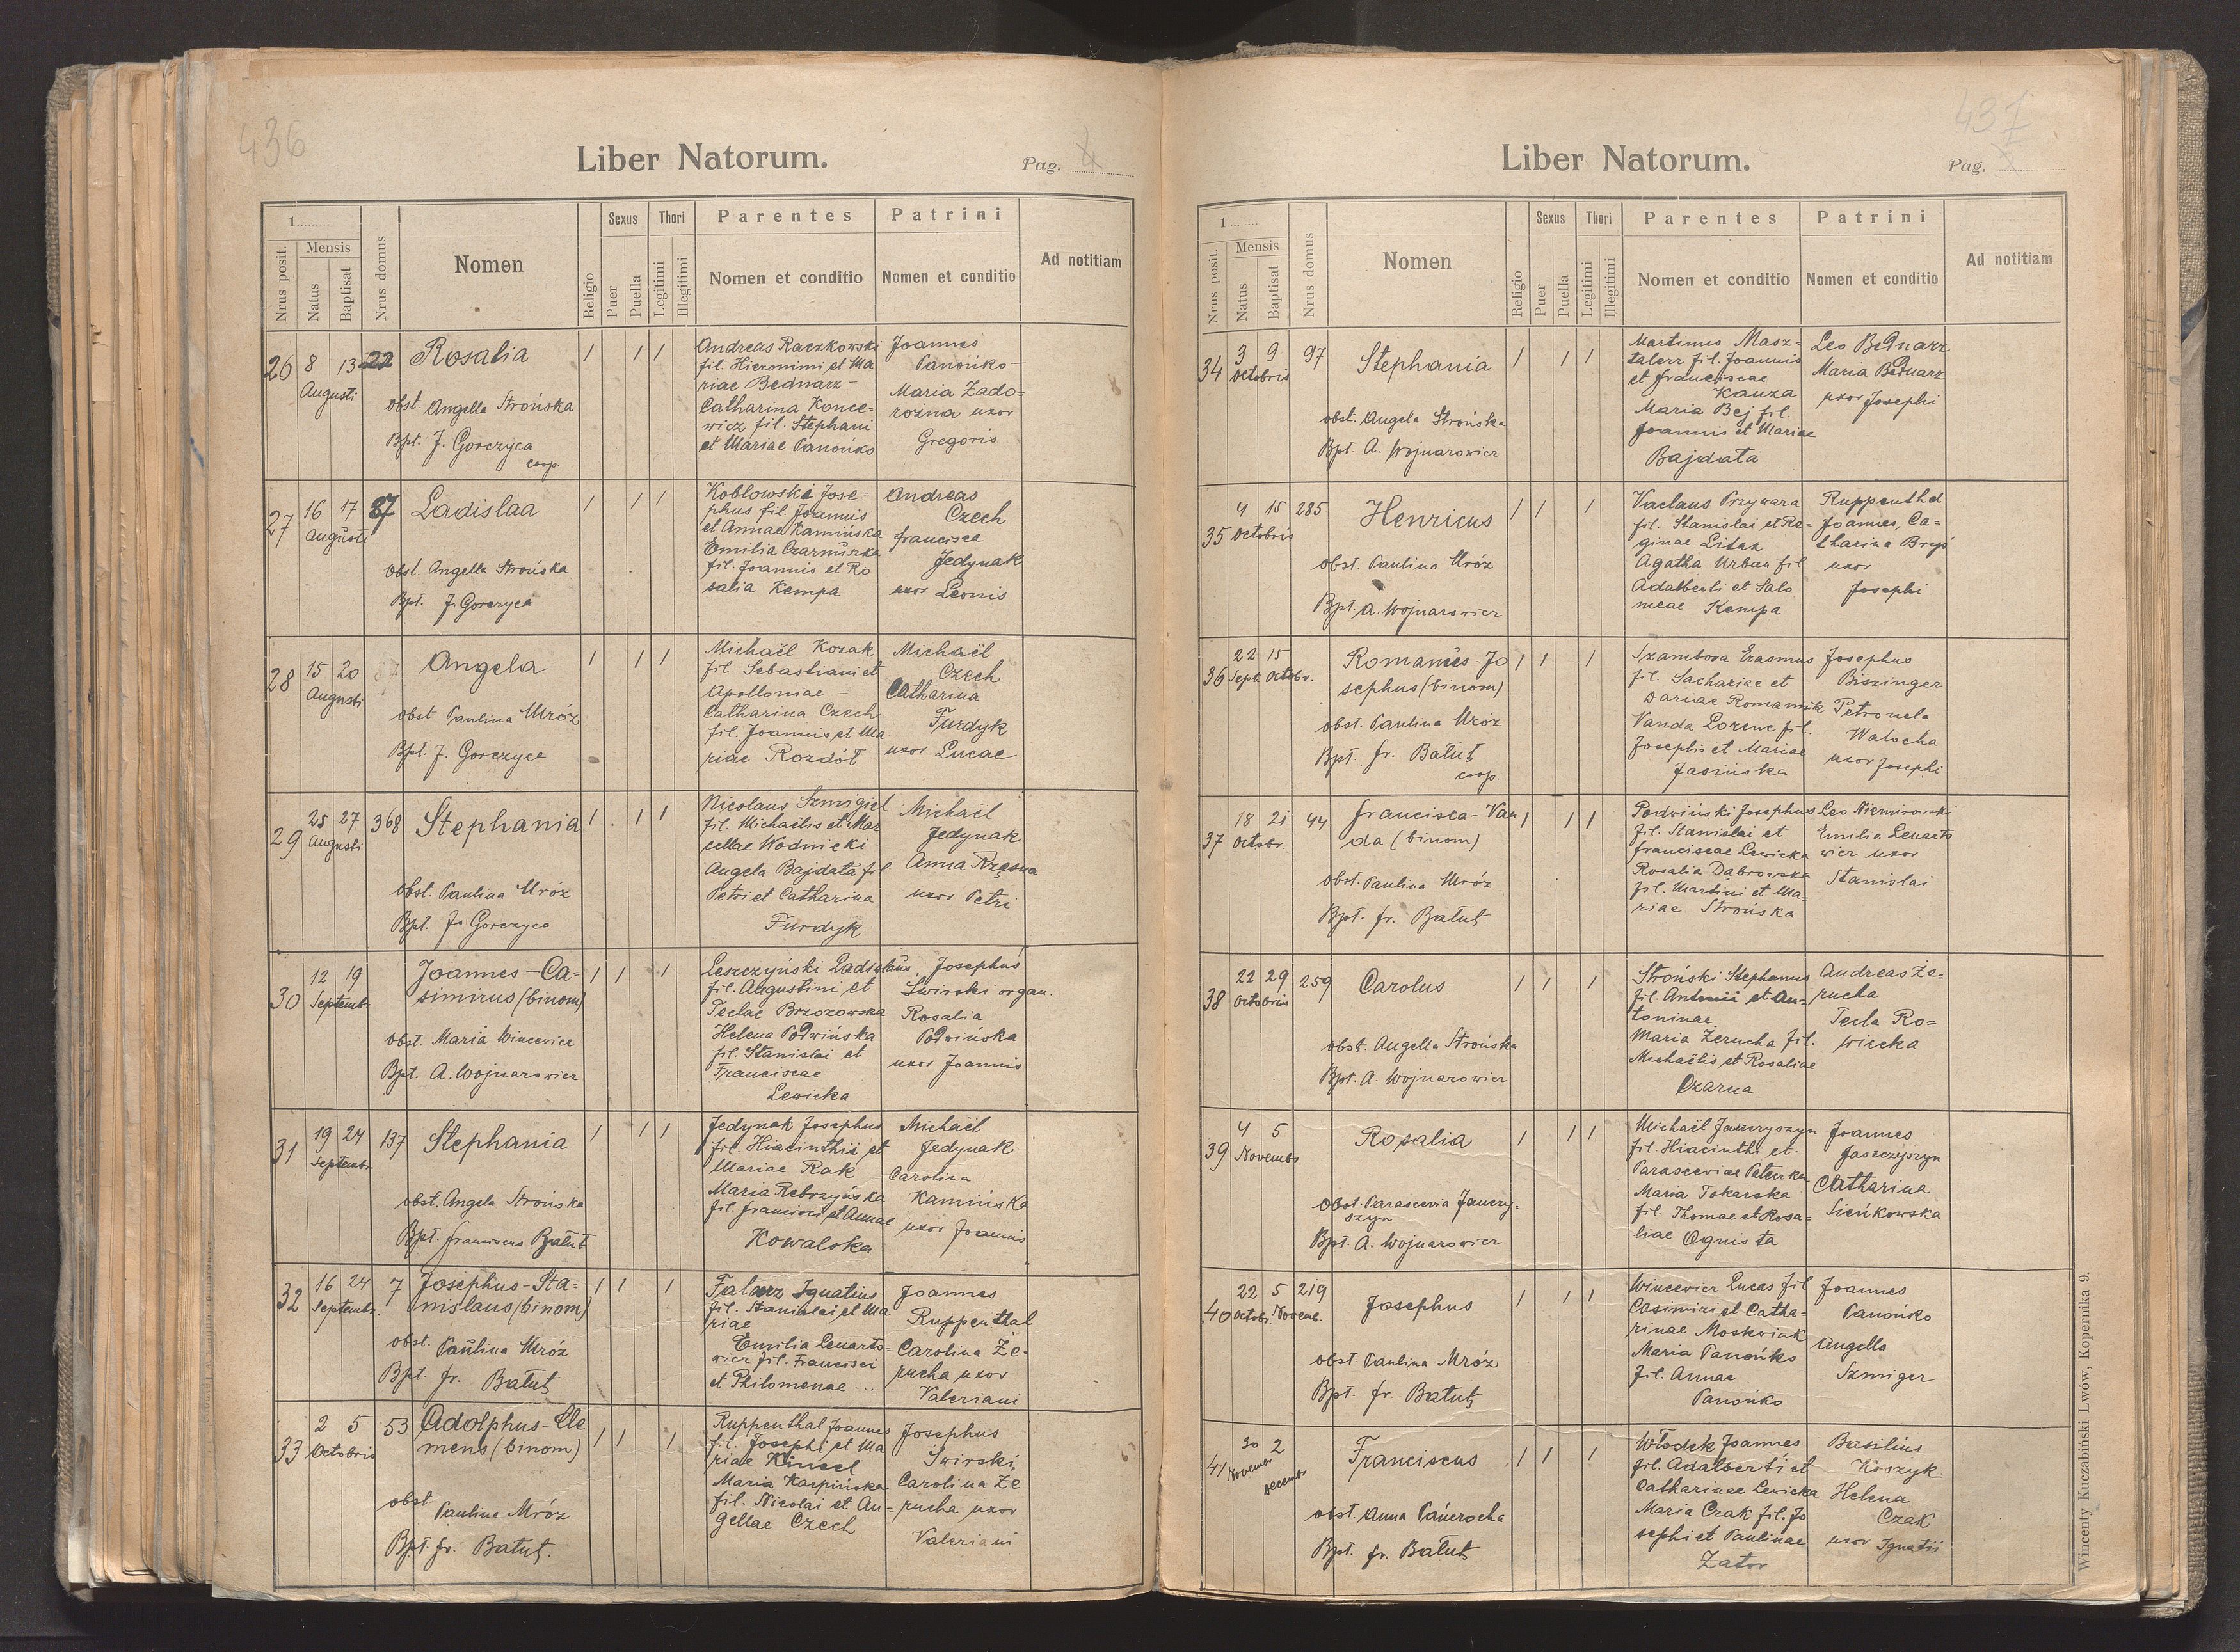 436
Liber Natorum.
Pag. 4
1
Nrus posit.
Mensis
Natus
Baptisat
Nrus domus
Nomen
Religio
Sexus
Puer
Puella
Thori
Legitimi
Illegitimi
Parentes
Nomen et conditio
Patrini
Nomen et conditio
Ad notitiam
26 8 13 22 Rosalia 1 1 1
Augusti
obst. Angella Strońska
Bpt. J. Gorczyca
coop.
Andreas Raczkowski
fil. Hieronimi et Ma
riae Bednarz -
Catharina Konce=
wicz fil. Stephani
et Mariae Panońko
Joannes
Panońko -
Maria Zado=
rożna uxor
Gregoris
27 16 17 87 Ladislaa 1 1 1
Augusti
Obst. Angella Strońska
Bpt. J. Gorczyca
Kobłowski Jose-
phus fil. Joannis
et Annae Kamińska
Emilia Czarnuszka
fil. Joannis et Ro
salia Kempa
Andreas
Czech
Francisca
Jedynak
uxor Leonis
28 15 20 87 Angela 1 1 1
Augusti
obst Paulina Mróz
Bpt. J. Gorczyca
Michaël Kozak
fil. Sebastiani et
Apolloniae -
Catharina Czech
fil. Joannis et Ma
riae Rozdół
Michaël
Czech
Catharina
Furdyk
uxor Lucae
29 25 27 368 Stephania 1 1 1
Augusti
obst. Paulina Mróz
Bpt. J. Gorczyca
Nicolaus Szmigiel
fil. Michaëlis et Mar
cellae Wodnicki
Angela Bajdała fil
Petri et Catharina
Furdyk
Michaël
Jedynak
Anna Rzęsna
uxor Petri
30 12 19 Joannes - Ca= 1 1 1
Septembr. simirus (binom)
obst. Maria Wincewicz
Bpt. A. Wojnarowicz
Leszczyński Ladislaus,
fil. Augustini et
Teclae Brzozowska
Helena Podwińska
fil. Stanislai et
Franciscae
Lewicka
Josephus
Świrski organ.
Rosalia
Podwińska
uxor Joannis
31 19 24 137 Stephania 1 1 1
Septembr.
obst. Angela Strońska
Bpt. Franciscus Bałut
Jedynak Josephus
fil. Hiacinthii et
Mariae Rak
Maria Rebrzyńska
fil. Francisci et Annae
Kowalska
Michaël
Jedynak
Carolina
Kamińska
uxor Joannis
32 16 24 7 Josephus - Sta= 1 1 1
Septembr. nislaus (binom)
obst. Paulina Mróz
Bpt. fr. Bałut
Falarz Ignatius
fil. Stanislai et Ma
riae
Emilia Lenarto=
wicz fil. Francisci
et Philomenae ...
Joannes
Ruppenthal
Carolina Że-
rucha uxor
Valeriani
33 2 5 53 Adolphus - Cle 1 1 1
Octobris mens (binom)
obst
Paulina Mróz
Bpt. fr. Bałut.
Ruppenthal Joannes
fil. Josephi et Ma
riae Kinsel
Maria Karpińska
fil. Nicolai et An=
gellae Czech
Josephus
Świrski,
Carolina Że
rucha uxor
Valeriani
437
Liber Natorum.
Pag.
1
Nrus posit.
Mensis
Natus
Baptisat
Nrus domus
Nomen
Religio
Sexus
Puer
Puella
Thori
Legitimi
Illegitimi
Parentes
Nomen et conditio
Patrini
Nomen et conditio
Ad notitiam
34 3 9 97 Stephania 1 1 1
octobris
obst. Angela Strońska
Bpt. A. Wojnarowicz
Martinus Masz-
talerz fil. Joannis
et Franciscae
Kauza
Maria Bej fil.
Joannis et Mariae
Bajdała
Leo Bednarz
Maria Bednarz
uxor Josephi
35 4 15 285 Henricus 1 1 1
octobris
obst. Paulina Mróz
Bpt. A. Wojnarowicz
Vaclaus Przywara
fil. Stanislai et Re-
ginae Litak
Agatha Urban fil
Adalberti et Salo
meae Kempa
Ruppenthal
Joannes, Ca=
tharina Bryś
uxor
Josephi
36 22 15 Romanus - Jo 1 1 1
Sept. Octobr. sephus (binom)
obst. Paulina Mróz
Bpt. fr. Bałut
coop.
Szambora Erasmus
fil. Sachariae et
Dariae Romaniuk
Vanda Lorenc fil.
Josephi et Mariae
Jasińska
Josephus
Biszinger
Petronela
Walocha
uxor Josephi
37 18 21 44 Francisca - Van 1 1 1
octobr. da (binom)
obst. Paulina Mróz
Bpt. fr. Bałut.
Podwiński Josephus
fil. Stanislai et
Franciscae Lewicka
Rosalia Dąbrowska
fil. Martini et Ma=
riae Strońska
Leo Niemirowski
Emilia Lenarto
wicz uxor
Stanislai
38 22 29 259 Carolus 1 1 1
octobris
obst. Angella Strońska
Bpt. A. Wojnarowicz
Stroński Stephanus
fil. Antonii et An-
toninae
Maria Żerucha fil.
Michaëlis et Rosaliae
Czarna
Andreas Że=
rucha
Tecla Ro=
wicka
39 4 5 Rosalia 1 1 1
Novembr.
Obst. Parascevia Jawczy-
szyn
Bpt. A. Wojnarowicz
Michaël Jaszczyszyn
fil. Hiacinthi et
Parasceviae
Maria Tokarska
fil. Thomae et Rosa=
liae Ognista
Joannes
Jaszczyszyn
Catharina
Sieńkowska
40 22 5 219 Josephus 1 1 1
Octobr. Novemb.
obst. Paulina Mróz
Bpt. fr. Bałut
Wincewicz Lucas fil
Casimiri et Catha=
rinae Moskwiak
Maria Panońko
fil. Annae
Panońko
Joannes
Panońko
Angella
Szmiger
41 30 2 Franciscus 1 1 1
Novembr. Decembr.
obst. Anna
Bpt. fr. Bałut
Włodek Joannes
fil. Adalberti et
Catharinae Lewicka
Maria Czak fil. Jo
sephi et Paulinae
Zator
Basilius
Koszyk
Helena
Czak
uxor Ignatii
Wincenty Kuczabiński Lwów, Kopernika 9.